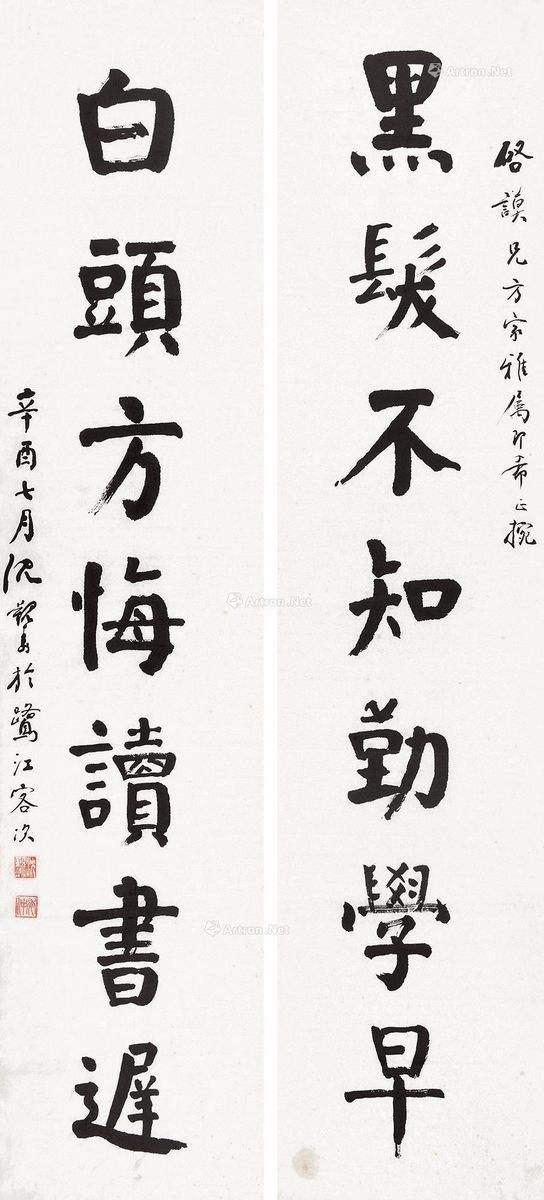 啓謨兄方家雅属即希正捥
黑髮不知勤學早
白頭方悔讀書遲
辛酉七月沈覲壽於鷺江客次
Artron.Net
Artron.Net
Artron.Net